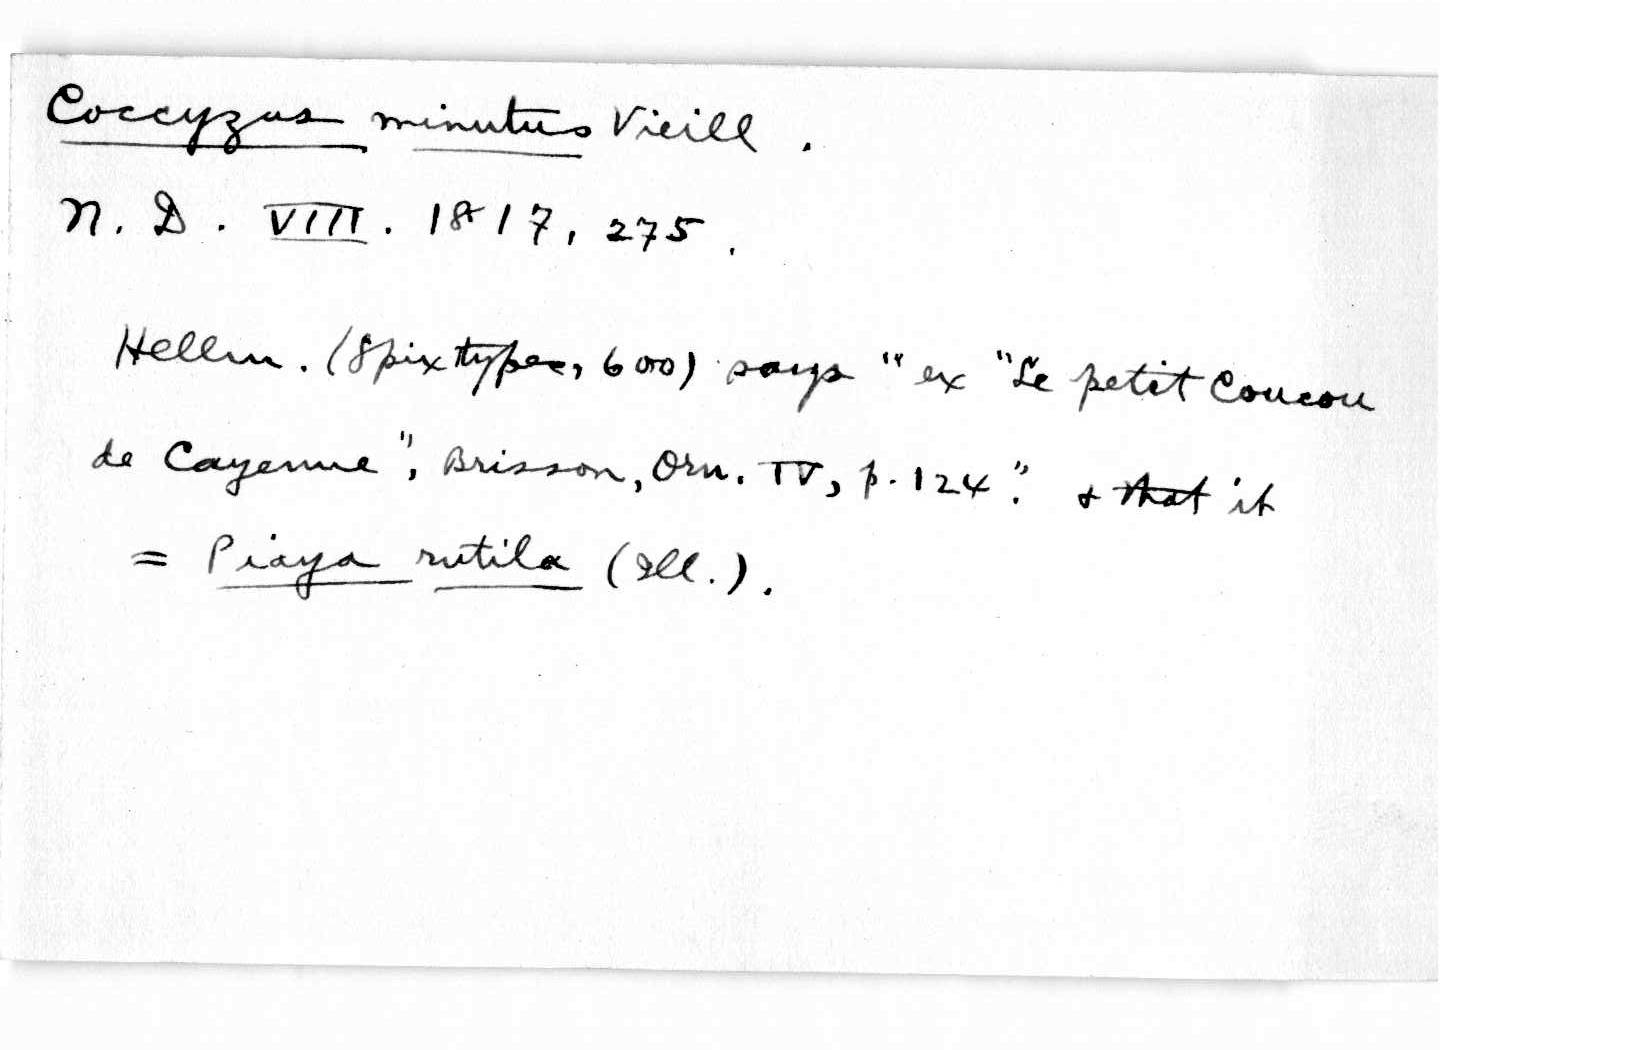 Coccyzus minutus Vieill.
N. D. VIII. 1817, 275.
Hellm. (Spix types, 600) says "ex "Le petit Coucou
de Cayenne", Brisson, Orn. IV, p. 124". & that it
= Piaya rutila (Ill.).